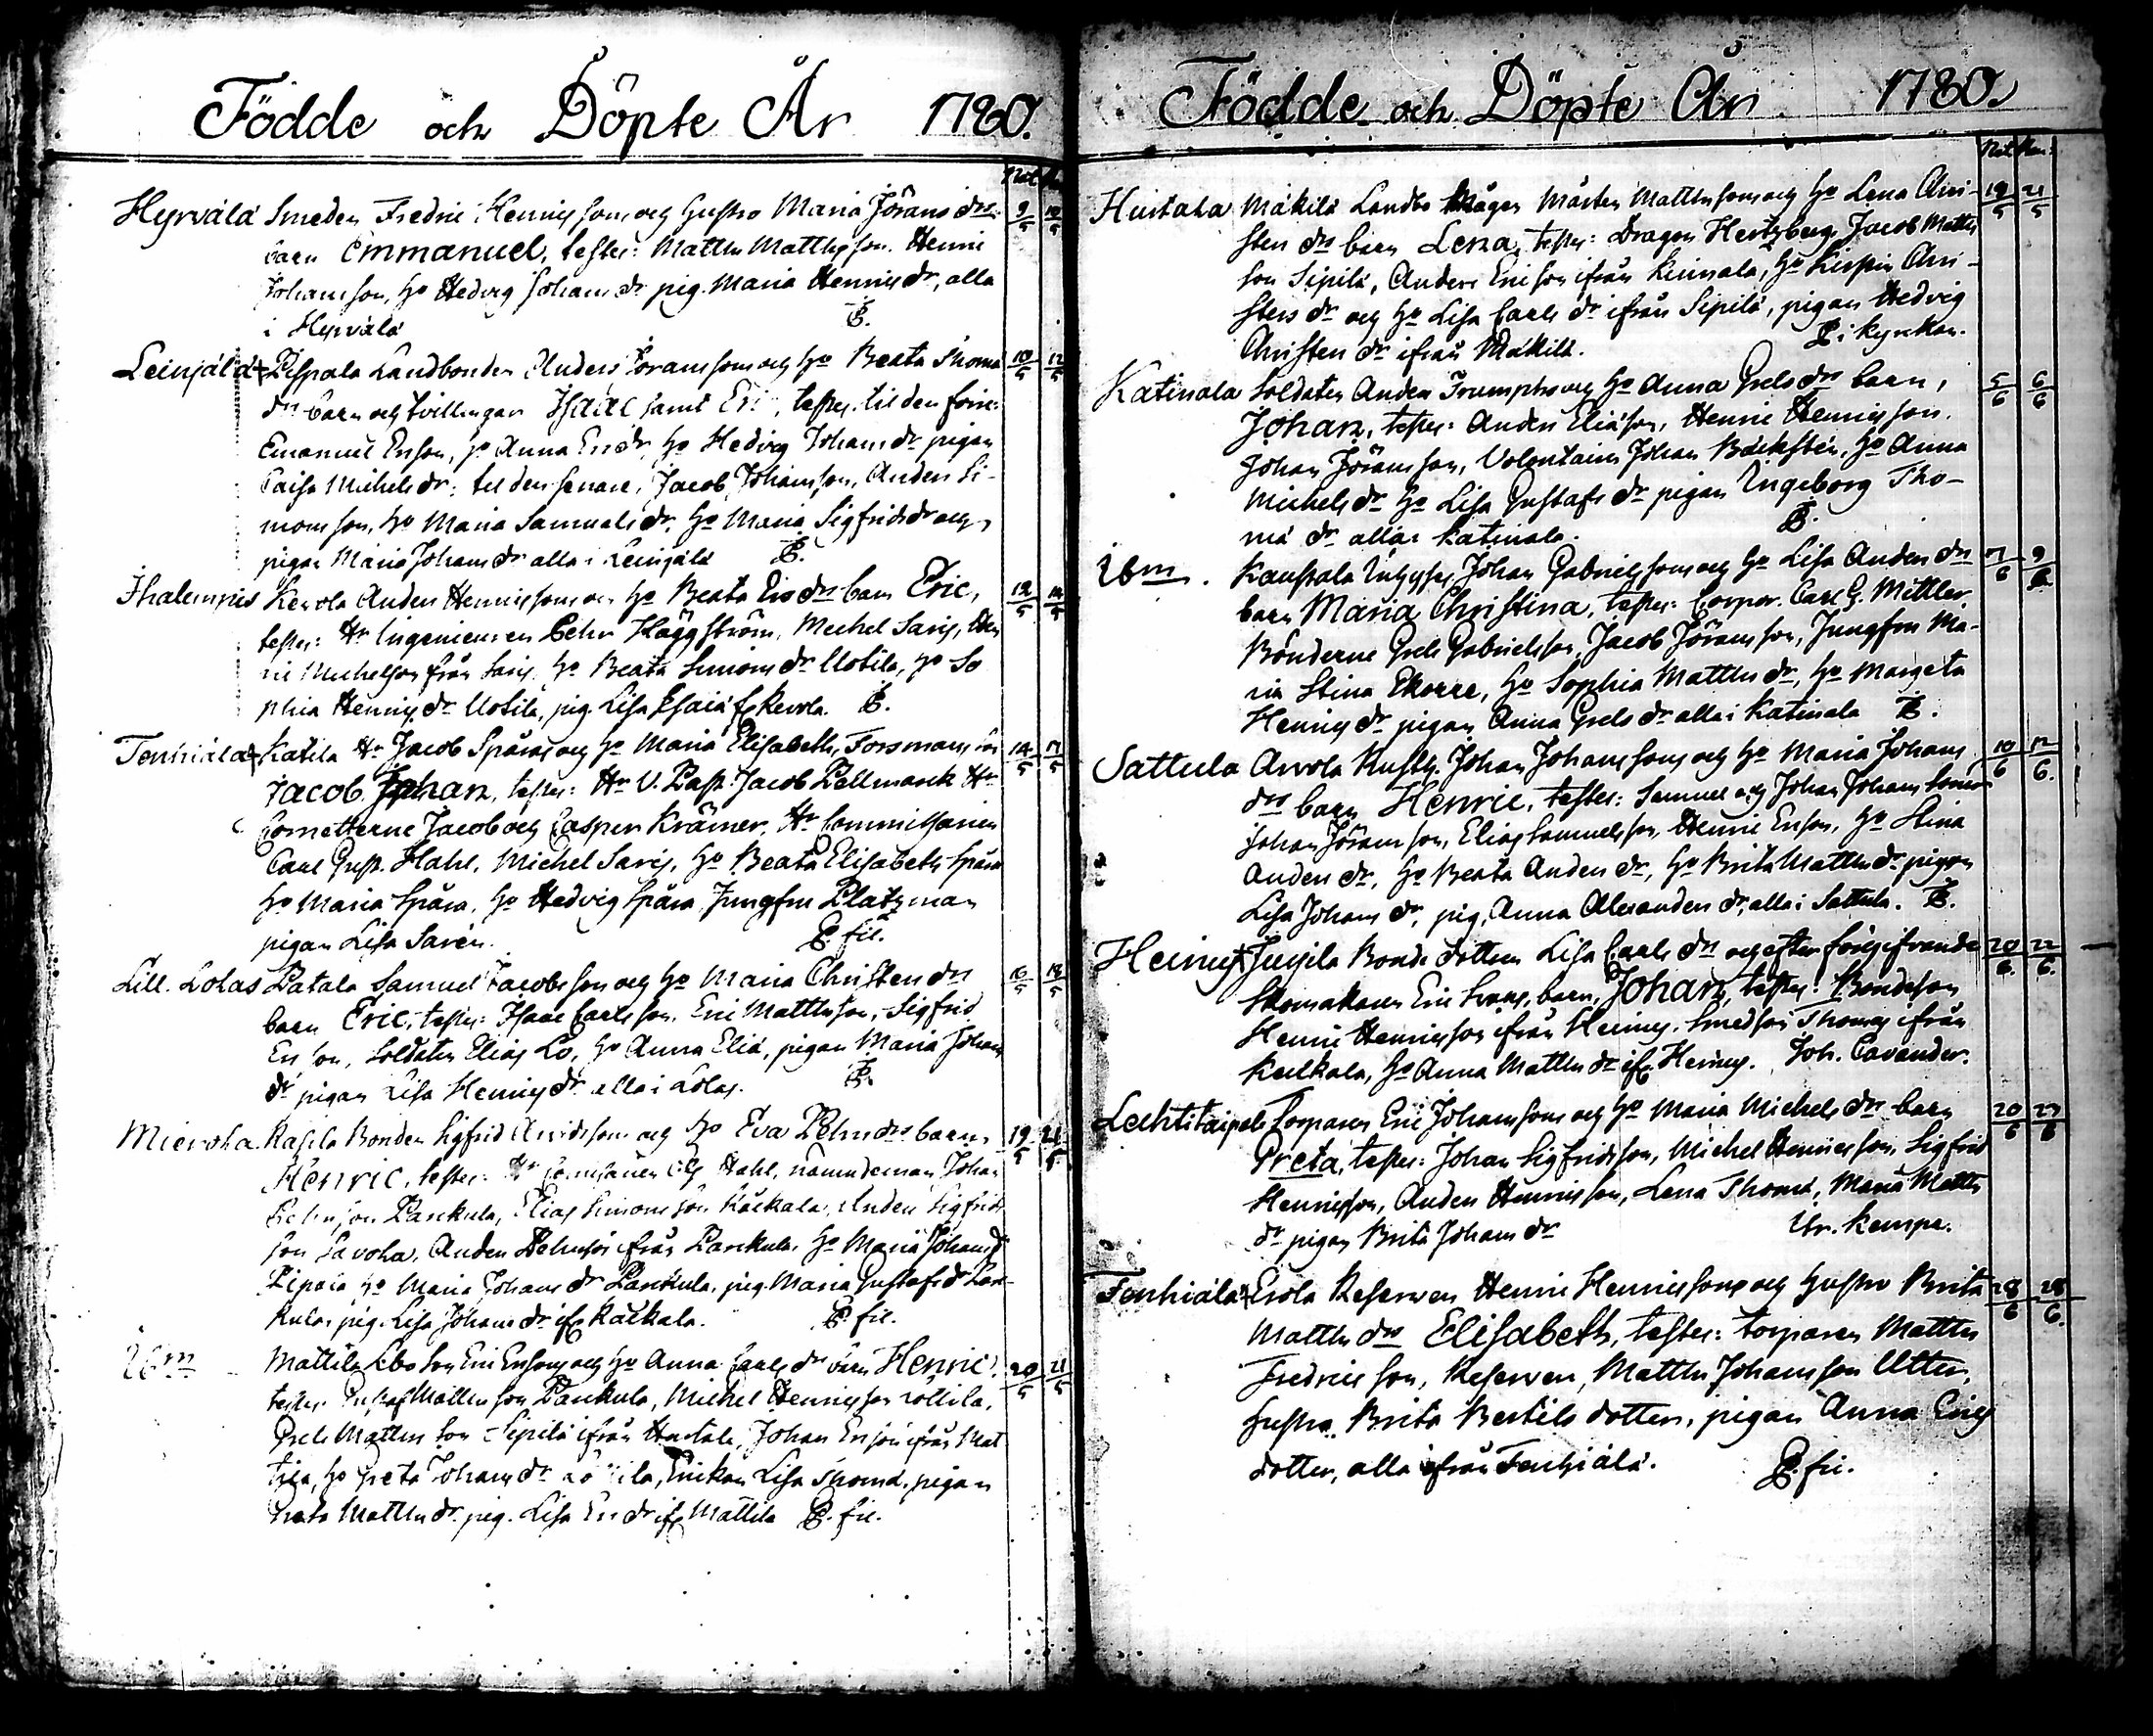 Födde och Döpte År 1780.
Nat Ren
Hyrvälä Smeden Fredric Henricsson och hustro Maria Jörans drs 9/5 10/5
barn Emmanuel, testes: Matths Matthsson. Henric
Johansson, ho Hedvig Johans dr pig. Maria Henrics dr, alla
i Hyrvälä P.
Leinjälä + Pispala Landbonden Anders Joransson och ho Beata Thomæ 10/5 12/5
drs barn och tvillingar Isaac samt Eric, testes til den förre
Emanuel Ersson, ho Anna Ers dr, ho Hedvig Johans dr pigan
Caisa Michels dr; til den senare, Jacob Johansson, Anders Si-
monsson, ho Maria Samuels dr, ho Maria Sigfrids dr och
pigan Maria Johans dr alla i Leinjälä P.
Ihalempis Kerola Anders Henricsson och ho Beata Ers drs barn Eric, 12/5 14/5
testes: Hr Ingenieuren Pehr Häggström, Michel Saris, Hen
ric Michelson från Saris, ho Beata Simons dr Uotila, ho So
phia Henrics dr Uotila, pig. Lisa Esaiæ fr Kerola. P.
Tenhiälä + Katila Hr Jacob Spåra och ho Maria Elisabeth Forsmans son 14/5 17/5
Jacob Johan, testes: Hr V. Past. Jacob Pellmarck Hr
Cornetterne Jacob och Casper Krämer, Hr Commissarien
Carl Gust. Hahl, Michel Saris, ho Beata Elisabeth Spåra
ho Maria Spåra, ho Hedvig Spåra Jungfru Platzman
pigan Lisa Saren. P. fil.
Lill. Lotas Patala Samuel Jacobsson och ho Maria Christers drs 16/5 18/5
barn Eric, testes: Isaac Carlsson, Eric Matthsson, Sigfrid
Ersson, Soldaten Elias Lo, ho Anna Eliæ, pigan Maria Johans
dr pigan Lisa Henrics dr alla i Lotas. P.
Miervoha Rasila Bonden Sigfrid Arvidsson och ho Eva Pehrs drs barn 19/5 21/5
Henric, testes: Hr Commissarien CG Hahl, nämndeman Johan
Pehrsson Parikula, Elias Simonsson Käikala, Anders Sigfrids
son Savoha, Anders Pehrsson ifrån Parikula, ho Maria Johans dr
ho Maria Johans dr Parikula, pig. Maria Gustafs dr Pari-
kula, pig. Lisa Johans dr ifr Käikala. P. fil.
Ibm Mattila Eric Ersson och ho Anna Carls drs barn Henric, 20/5 21/5
testes Gustaf Mattsson Parikula, Michel Henricsson
Grels Matthsson Sipilä ifrån Hurtala, Johan Ersson ifrån Mat
tila, ho Greta Johans dr Enkan Lisa Thomæ, pigan
Matths dr. pig. Lisa Ers dr ifr Mattila P. fil.
Födde och Döpte År 1780.
Nat Ren
Hurtala Mäkilä Landbo Mågen Mårten Matthsson och ho Lena Chri- 19/5 21/5
sters drs barn Lena, testes: Dragon Hertzberg, Jacob Matths
son Sipilä, Anders Ericson ifrån Kuisala, ho Kerstin Chri-
sters dr och ho Lisa Carls dr ifrån Sipilä, pigan Hedvig
Christers dr ifrån Mäkilä. P. i kyrkan.
Katinala Soldaten Anders Trumph och ho Anna Grels drs barn, 5/6 6/6
Johan, testes: Anders Eliæson, Henric Henricsson.
Johan Jöransson, Volontairen Johan Bäckstén, ho Anna
Michels dr ho Lisa Gustafs dr pigan Ingeborg Tho-
mæ dr alla i Katinala. P.
Ibm. Kaustala Johan Gabrielsson och ho Lisa Anders drs 7/6 9/6
barn Maria Christina, testes: Corpor. Carl G. Mittler
Bönderne Grels Gabrielsson, Jacob Jöransson, Jungfru Ma-
ria Stina Ekorre, ho Sophia Matths dr, ho Margeta
Henrics dr pigan Anna Grels dr alla i Katinala P.
Sattula Arvola Rusth. Johan Johansson och ho Maria Johans 10/6 12/6.
drs barn Henric, testes: Samuel och Johan Johans
Johan Jöransson, Elias Samuelsson, Henric Ersson, ho Stina
Anders dr, ho Beata Anders dr, ho Brita Matths dr pigan
Lisa Johans dr, pig. Anna Alexanders dr, alla i Sattula. P.
Heinus + Jussila Bonde dottren Lisa Carls drs och efter föregifvande 20/6. 22/6.
Skomakaren Eric barn, Johan, testes: Bondeson
Henric Henricsson ifrån Heinus. Smedson Thomas ifrån
Kulkala, ho Anna Matths dr ifr Heinus. Joh. Cavander.
Lechtitaipale Torparen Eric Johansson och ho Maria Michels drs barn 20/6 23/6
Greta, testes: Johan Sigfridsson, Michel Henricsson, Sigfrid
Henricsson, Anders Henricsson, Lena Thomæ, Maria Matths
dr pigan Brita Johans dr Kempe.
Tenhiälä + Erola Reserven Henric Henricsson och hustro Brita 28/6 28/6.
Matths drs Elisabeth, testes: torparen Matths
Fredricsson, Reserven, Matths Johansson Utter,
hustro, Brita Bertils dotter, pigan Anna Erics
dotter, alla ifrån Tenhiälä. P. fil.